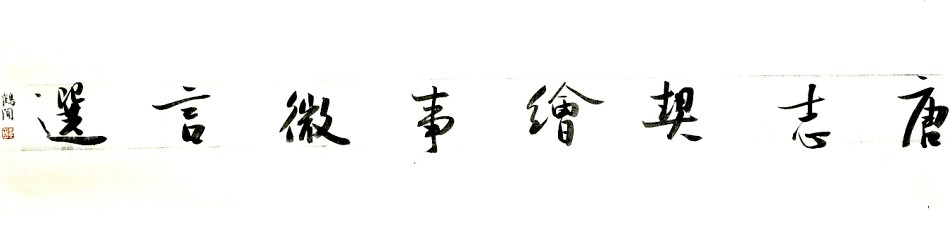 唐志契繪事微言選
鶴閒